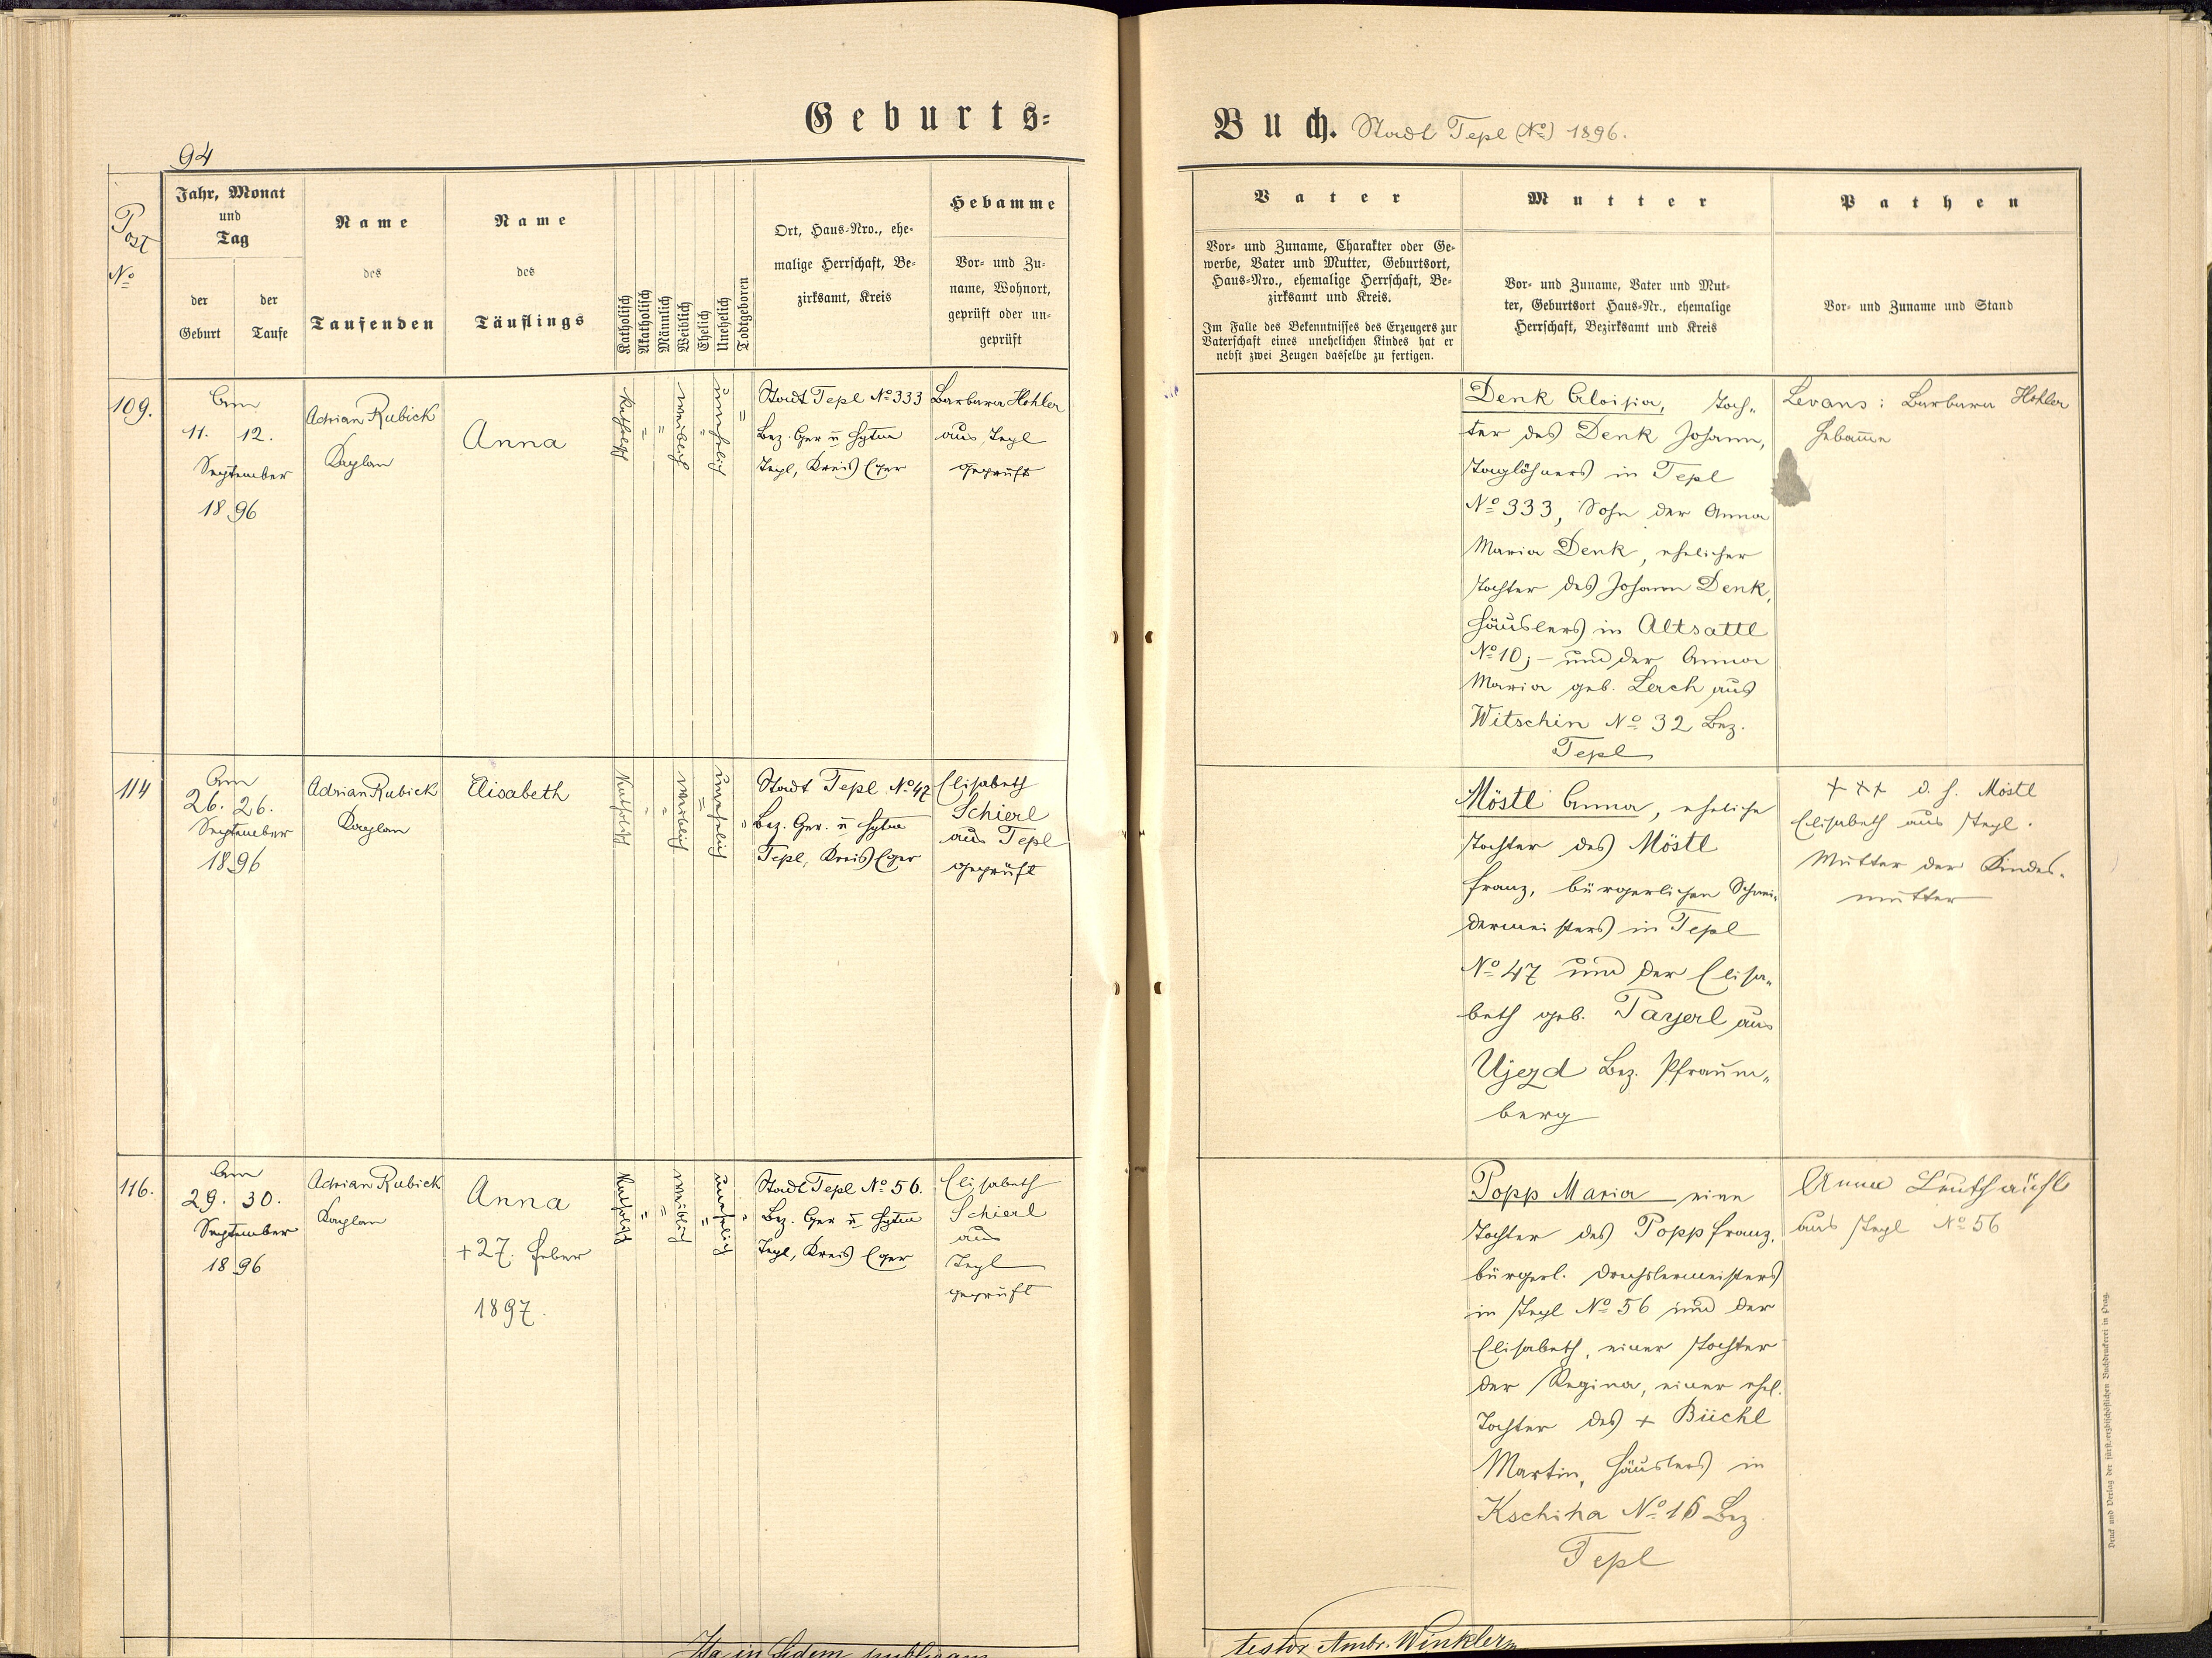 Geburts=
94
Post
No
Jahr, Monat
und
Tag
der
Geburt
der
Taufe
Name
des
Taufenden
Name
des
Täuflings
Katholisch
Akatholisch
Männlich
Weiblich
Ehelich
Unehelich
Todtgeboren
Ort, Haus-Nro., ehe-
malige Herrschaft, Be-
zirksamt, Kreis
Hebamme
Vor- und Zu-
name, Wohnort,
geprüft oder un-
geprüft
109.
Am
11. 12.
September
1896
Adrian Rubick
Kaplan
Anna
katholisch
"
"
weiblich
"
unehelich
"
Stadt Tepl No 333
Bez. Ger u Hptm
Tepl, Kreis Eger
Barbara Hohler
aus Tepl
geprüft
114
Am
26. 26.
September
1896
Adrian Rubick
Kaplan
Elisabeth
Katholisch
"
"
weiblich
"
unehelich
"
Stadt Tepl No 47
Bez. Ger. u Hptm
Tepl, Kreis Eger
Elisabeth
Schierl
aus Tepl
geprüft
116.
Am
29. 30.
September
1896
Adrian Rubick
Kaplan
Anna
+27. Feber
1897.
Katholisch
"
"
weiblich
"
unehelich
"
Stadt Tepl No 56.
Bez. Ger u Hptm
Tepl, Kreis Eger
Elisabeth
Schierl
aus
Tepl
geprüft
Ita in fidem publicam
Buch. Stadt Tepl (No) 1896.
Vater
Vor- und Zuname, Charakter oder Ge-
werbe, Vater und Mutter, Geburtsort,
Haus-Nro., ehemalige Herrschaft, Be-
zirksamt und Kreis.
Im Falle des Bekenntnisses des Erzeugers zur
Vaterschaft eines unehelichen Kindes hat er
nebst zwei Zeugen dasselbe zu fertigen.
Mutter
Vor- und Zuname, Vater und Mut-
ter, Geburtsort Haus-Nr., ehemalige
Herrschaft, Bezirksamt und Kreis
Pathen
Vor- und Zuname und Stand
Denk Aloisia, Toch-
ter des Denk Johann,
Taglöhners in Tepl
No 333, Sohn der Anna
Maria Denk, ehelicher
Tochter des Johann Denk,
Häuslers in Altsattl
No 10; - und der Anna
Maria geb. Lerch aus
Witschin No 32 Bez.
Tepl
Levans: Barbara Hohler
Hebamme
Möstl Anna, eheliche
Tochter des Möstl
Franz, bürgerlichen Schnei-
dermeisters in Tepl
No 47 und der Elisa-
beth geb. Payerl aus
Ujezd Bez. Pfraum-
berg
+++ d. h. Möstl
Elisabeth aus Tepl.
Mutter der Kindes-
mutter
Popp Maria eine
Tochter des Popp Franz,
bürgerl. Drechslermeisters
in Tepl No 56 und der
Elisabeth, einer Tochter
der Regina, einer ehel.
Tochter des + Büchl
Martin, Häuslers in
Kschiha No 16 Bez
Tepl
Anna
aus Tepl No 56
testor Ambr. Winkler
Druck und Verlag der fürst.-erzbischöflichen Buchdruckerei in Prag.